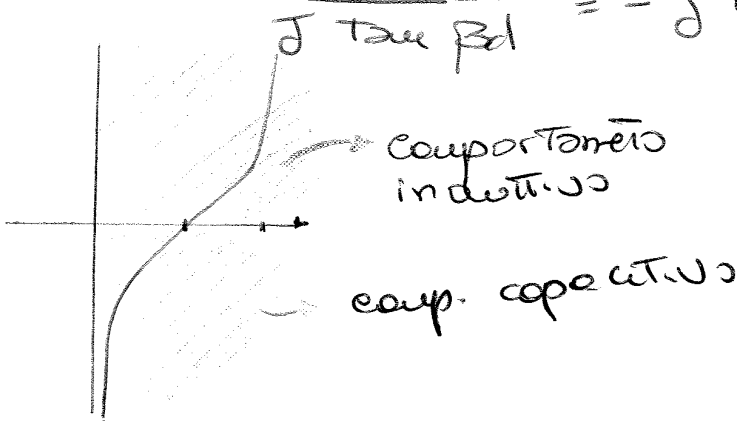 J tan βd = - J
comportamento
induttivo
comp. capacitivo